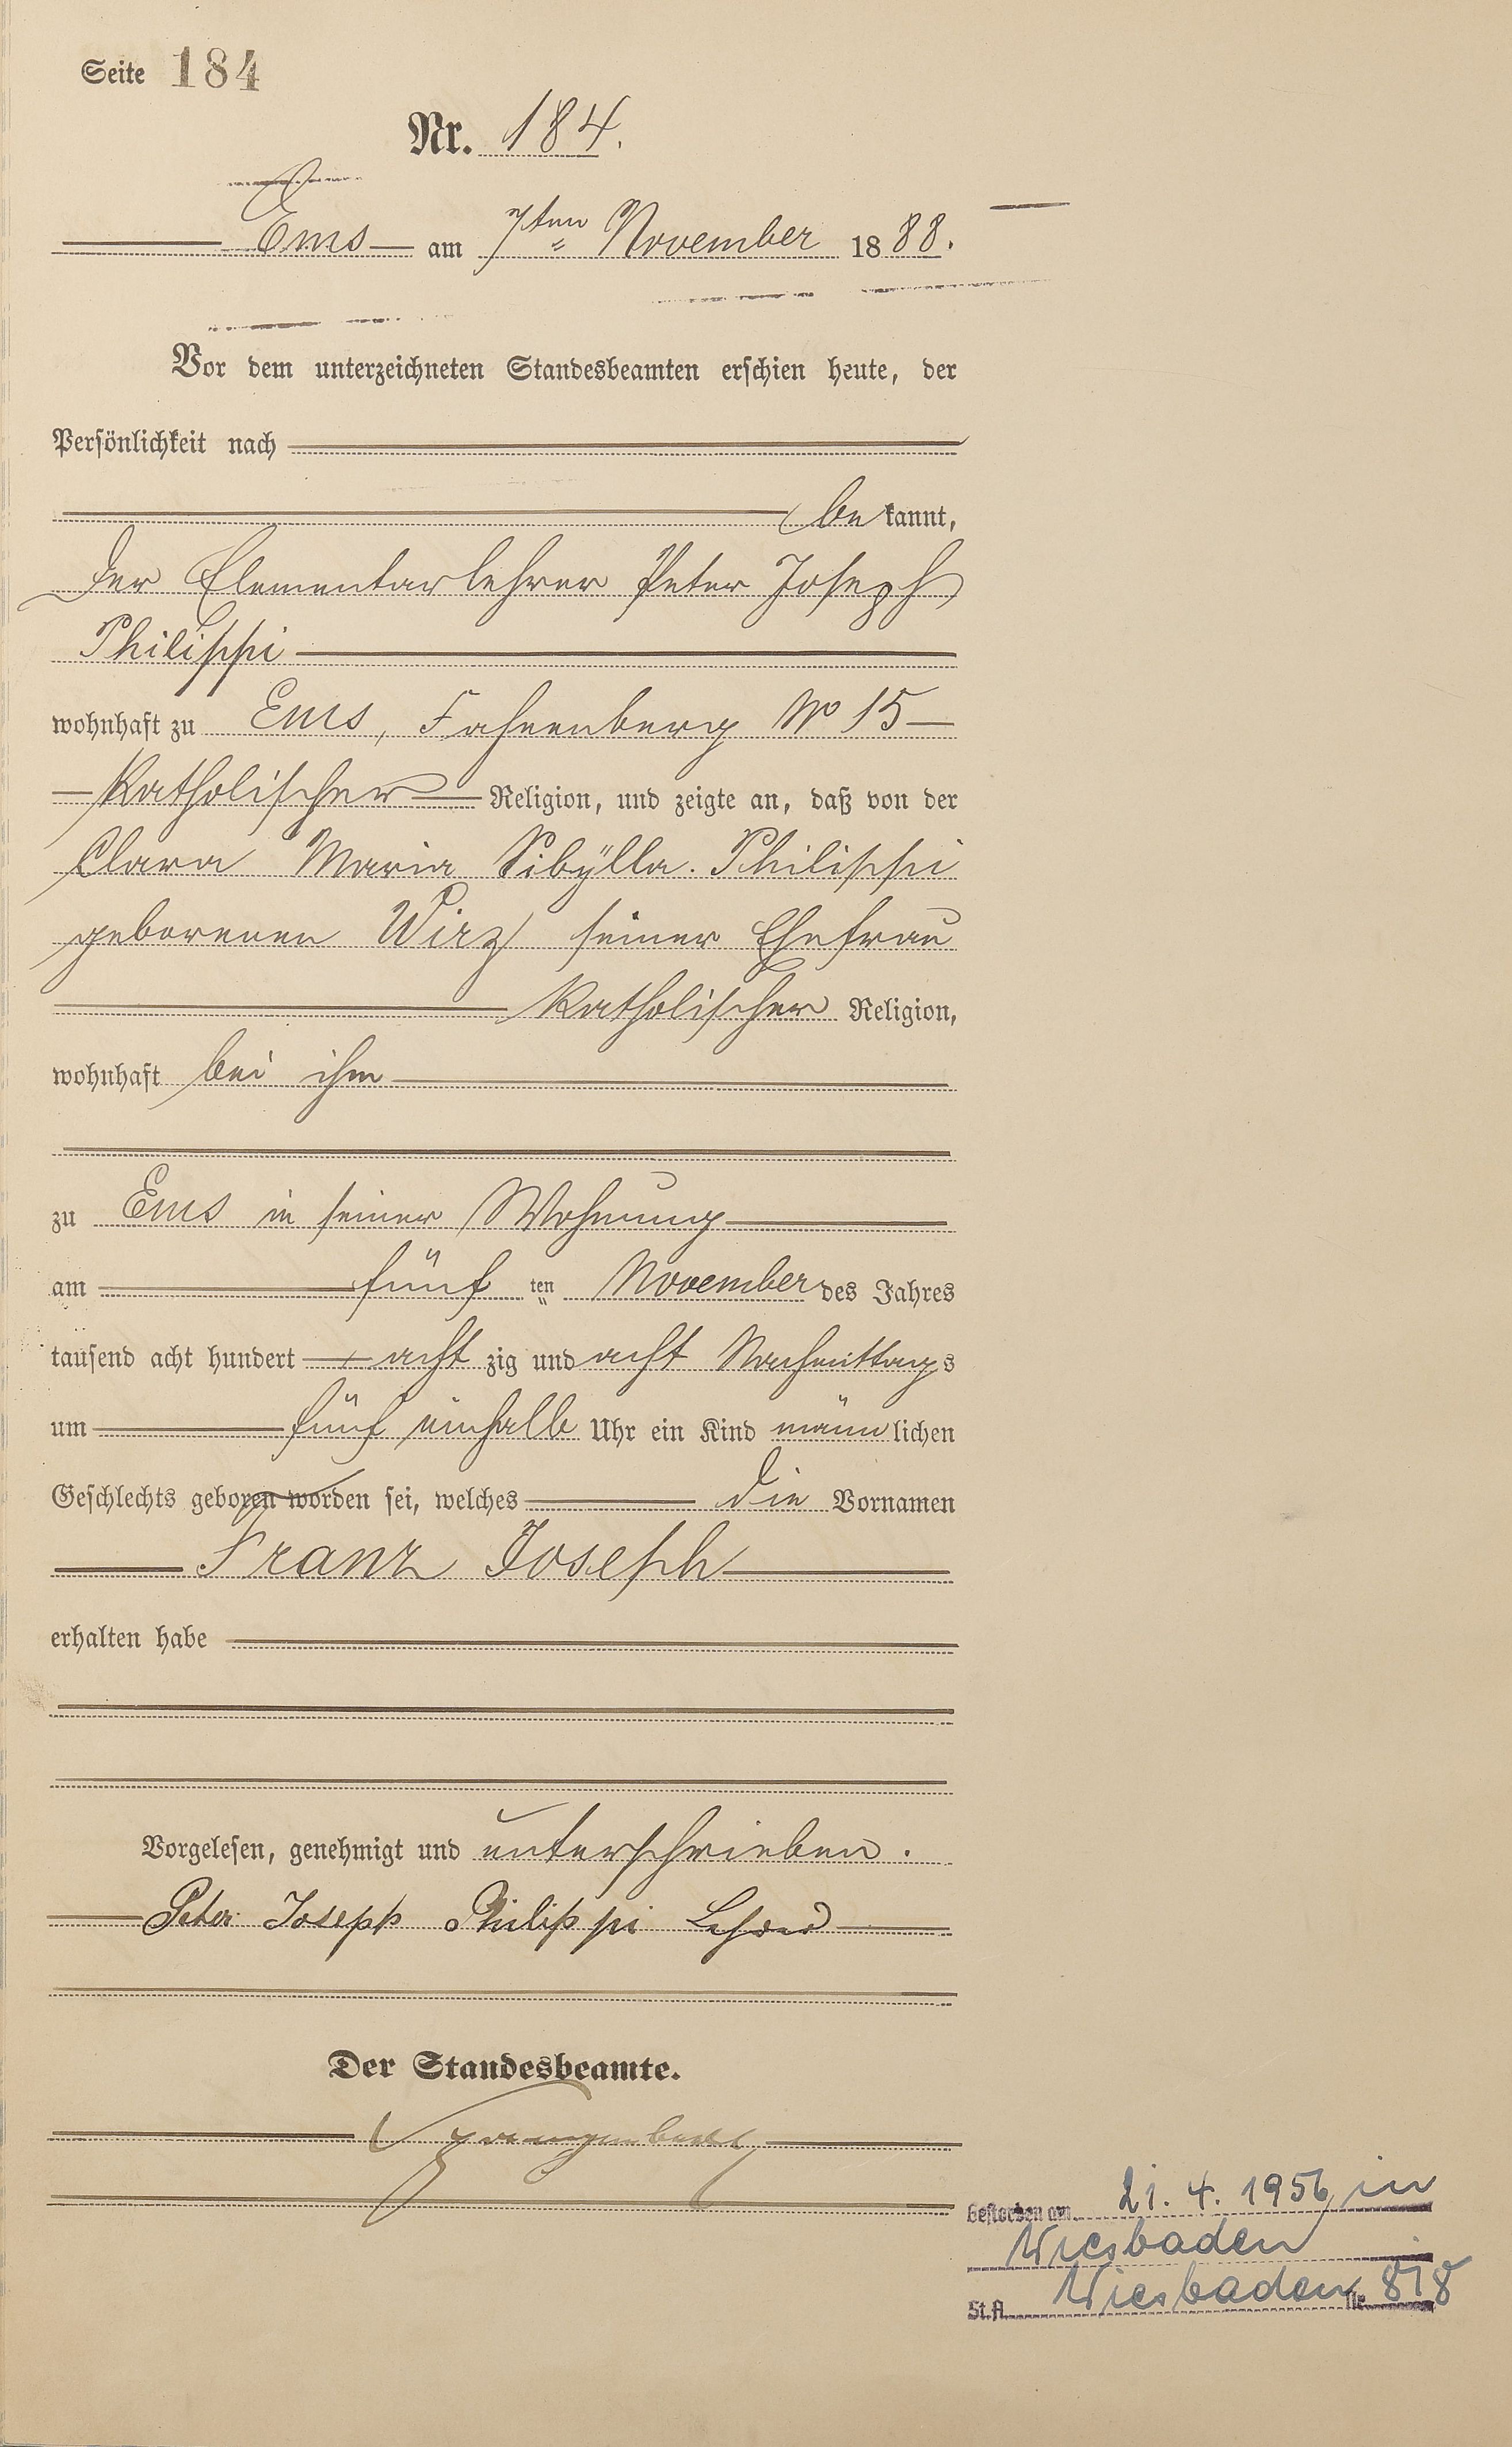 Seite 184
Nr. 184.
Ems am 7ten November 1888.
Vor dem unterzeichneten Standesbeamten erschien heute, der
Persönlichkeit nach
bekannt,
der Elementarlehrer Peter Joseph
Philippi
wohnhaft zu Ems, Fahnenberg No 15
katholischer Religion, und zeigte an, daß von der
Clara Maria Sibÿlla Philippi
geborenen Wirz seiner Ehefrau
katholischer Religion,
wohnhaft bei ihm
zu Ems in seiner Wohnung
am fünf ten November des Jahres
tausend acht hundert acht zig und acht Nachmittags
um fünf einhalb Uhr ein Kind männlichen
Geschlechts geboren worden sei, welches die Vornamen
Franz Joseph
erhalten habe
Vorgelesen, genehmigt und unterschrieben.
Peter Joseph Philippi Lehrer
Der Standesbeamte.
Gestorben am 21.4.1956 in
Wiesbaden
St.A. Wiesbaden Nr. 818